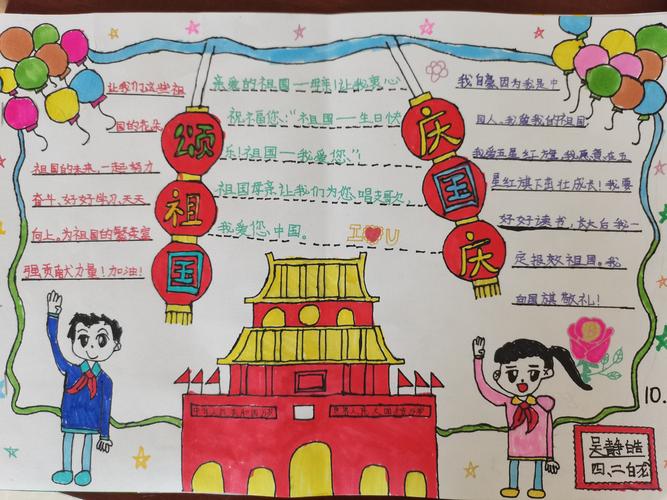 让我们这些祖
国的花朵
祖国的未来,一起努力
奋斗,好好学习,天天
向上。为祖国的繁荣富
强贡献力量!加油!
颂
祖
国
亲爱的祖国—母亲!让我衷心
祝福您:“祖国—生日快
乐!祖国—我爱您”!
祖国母亲让我们为您唱支歌,
我爱您中国。
I U
庆
国
庆
我自豪因为我是中
国人。我爱我的祖国
我爱五星红旗,我愿意在五
星红旗下茁壮成长!我要
好好读书,长大后我一
定报效祖国。我
向国旗敬礼!
中华人民共和国万岁
世界人民大团结万岁
10.
吴静皓
四、二